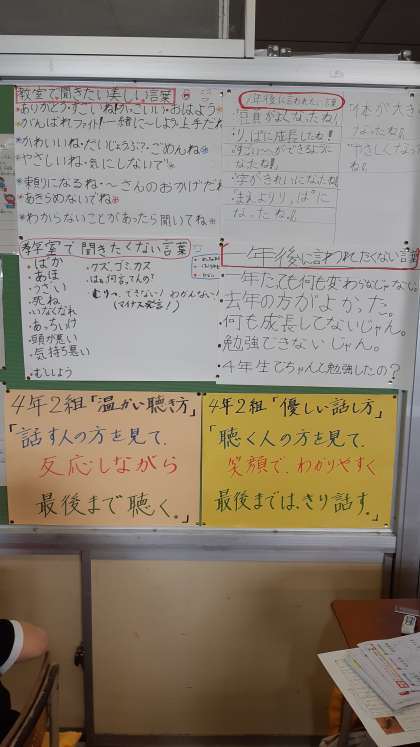 教室で聞きたい美しい言葉
ありがとう・すごいね!かっこいい・おはよう
がんばれ ファイト!一緒に〜しよう・上手だね
かわいいね・だいじょうぶ?・ごめんね
やさしいね・気にしないで
頼りになるね・〜さんのおかげだね
あきらめないでね
わからないことがあったら聞いてね
1年後に言われたい言葉
「性格がよくなったね!
「りっぱに成長したね!
「すごい〜ができるように
なったね!
「字がきれいになったね!
「まえよりりっぱに
なったね。
「体が大き
なったね。
「やさしくなった
ね。
教室で聞きたくない言葉
・ばか
・あほ
・うざい
・死ね
・いなくなれ
・あっちいけ
・頭が悪い
・気持ち悪い
・むししよう
・クズ、ゴミ、カス
・はぁ、何言ってんの?
・むりっ、できない!わかんない〜
(マイナス発言!)
一年後に言われたくない言葉
一年たっても何も変わらないじゃない。
去年の方がよかった。
何も成長してないじゃん。
勉強できないじゃん。
4年生でちゃんと勉強したの?
4年2組「温かい聴き方」
「話す人の方を見て、
反応しながら
最後まで聴く。」
4年2組「優しい話し方」
「聴く人の方を見て、
笑顔で、わかりやすく
最後まではっきり話す。」